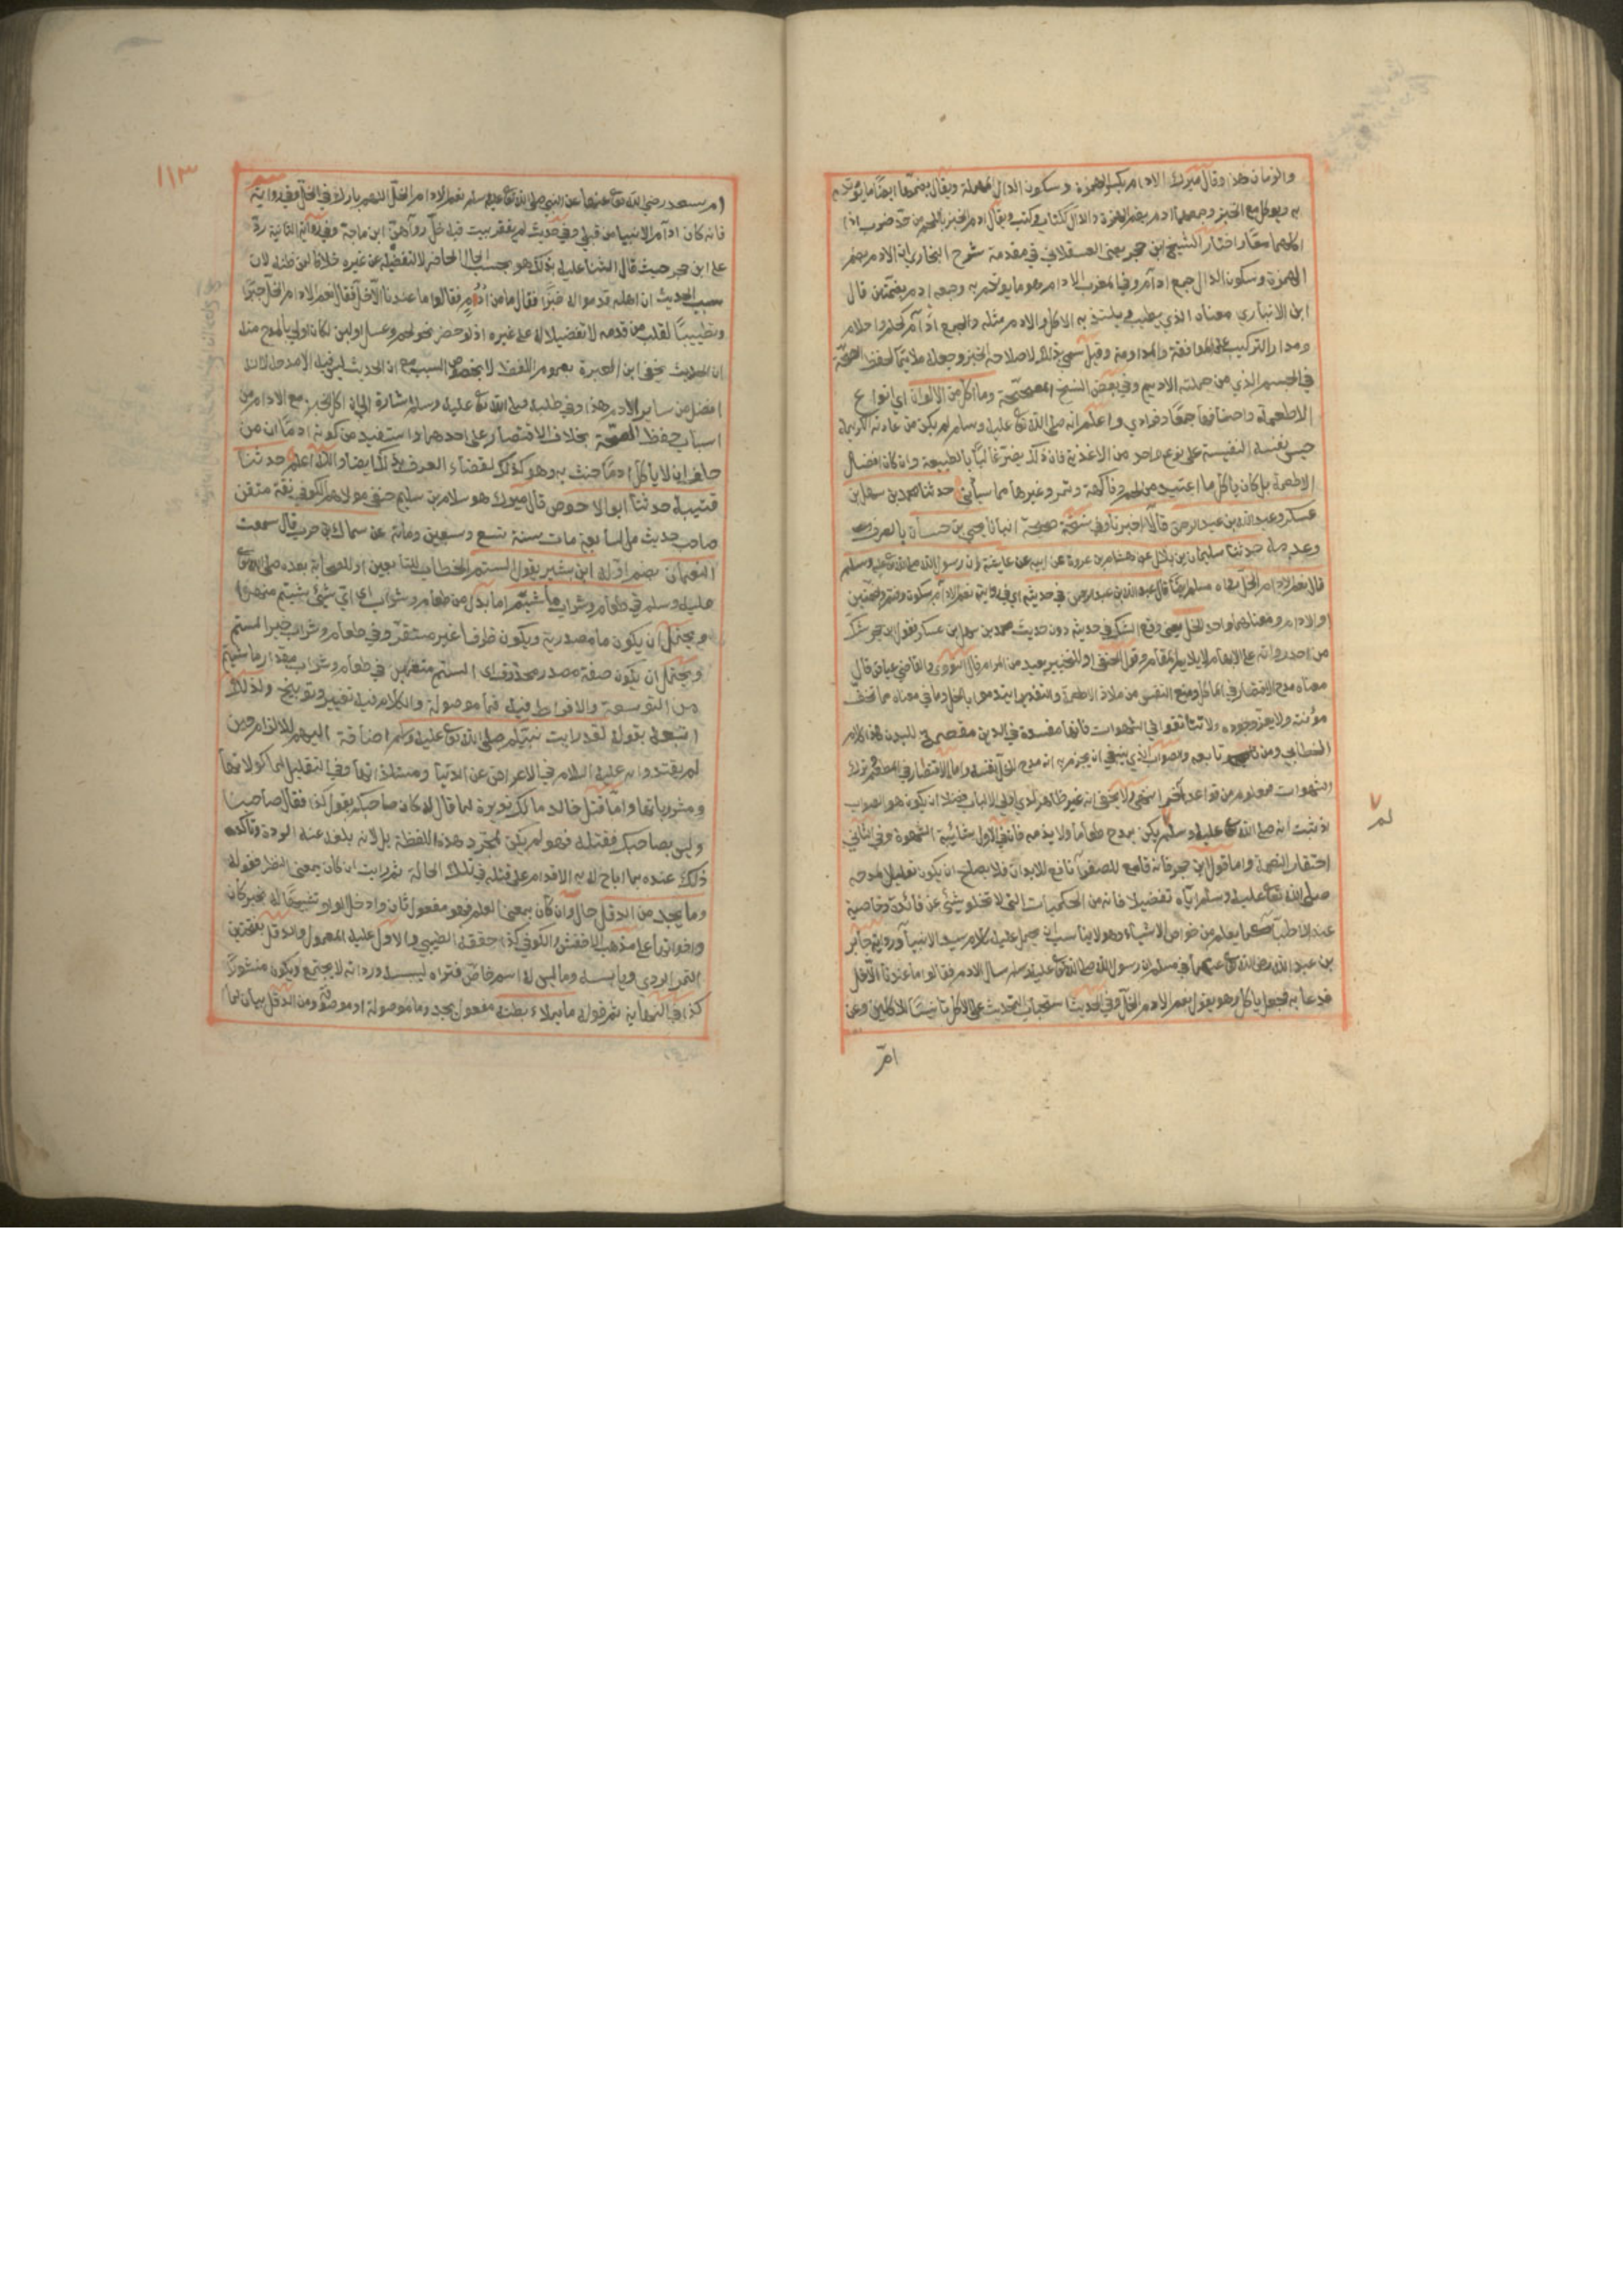 والزمان هذا وقال ميرك الادام بكسر الهمزة وسكون الدال المهملة ويقال بضمها ايضا ما يؤتدم
به ويوكل مع الخبز وجمعها ادم بضم الهمزة والدال ككتاب وكتب ويقال ادم الخبز باللحم من حد ضرب اذا
اكلهما معا واختار الشيخ ابن حجر يعني العسقلاني في مقدمة شرح البخاري ان الادم بضم
الهمزة وسكون الدال جمع ادام وفي المغرب الادام هو ما يؤتدم به وجمعه ادم بضمتين قال
ابن الانباري معناه الذي يطيب ويلتذ به الاكل والادم مثله والجمع ادآم كحلم واحلام
ومدار التركيب على الموافقة والمداومة وقيل سمي بذلك لاصلاحه الخبز وجعله ملائما لحفظ الصحة
في الجسم الذي من جملته الاديم وفي بعض النسخ المصححة وما اكل من الالوان اي انواع
الاطعمة واصنافها جمعا وفرادي واعلم انه صلى الله تع عليه وسلم لم يكن من عادته الكريمة
حبس نفسه النفيسة على نوع واحد من الاغذية فان ذلك يضر غالبا بالطبيعة وان كان افضل
الاطعمة بل كان ياكل ما اعتيد من لحم وفاكهة وتمر وغيرها مما سيأتي حدثنا محمد بن سهل بن
عسكر وعبد الله بن عبد الرحمن قالا اخبرنا وفي نسخة صحيحة انبانا يحيى بن حسان بالصرف
وعدمه حدثنا سليمان بن بلال عن هشام بن عروة عن ابيه عن عايشة ان رسول الله صلى الله تع عليه وسلم
قال نعم الادام الخل رواه مسلم ايضا قال عبد الله بن عبد الرحمن في حديثه اي في روايته نعم الادم بسكون وضم وبضمتين
او الادام ومعناهما واحد الخل يعني وقع الشك في حديثه دون حديث محمد بن سهل بن عسكر فقول ابن حجر شك
من احد رواته على الابهام لا يلايم المقام وقول الحنفي او للتخيير بعيد من المرام قال النووي والقاضي عياض قال
معناه مدح الاقتصار في المآكل ومنع النفس من ملاذ الاطعمة والتقدير ايتدموا بالخل وما في معناه مما تخف
مؤنته ولا يعز وجوده ولا تتانقوا في الشهوات فانها مفسدة في الدين مقصم للبدن هذا كلام
الخطابي ومن تابعه والصواب الذي ينبغي ان يجزم به انه مدح الخل نفسه واما الاقتصار في المطعم وترك
الشهوات فمعلوم من قواعد آخر انتهى ولا يخفى انه غير ظاهر لدي اولي الالباب فضلا ان يكون هو الصواب
اذ ثبت انه صلى الله تع عليه وسلم لم يكن يمدح طعاما ولا يذمه فان في الاول شائبة الشهوة وفي الثاني
احتقار النعمة واما قول ابن حجر فانه قامع للصفراء نافع للابدان فلا يصلح ان يكون تعليلا لمدحه
صلى الله تع عليه وسلم اياه تفضيلا فانه من الحكميات التي لا تخلو شيئ عن فائدة وخاصية
عند الاطباء كما يعلم من خواص الاشياء وهو لا يناسب ان يحمل عليه كلام سيد الانبياء ورواية جابر
بن عبد الله رضي الله تع عنهما في مسلم ان رسول الله صلى الله تع عليه وسلم سال الادم فقالوا ما عندنا الا خل
فدعا به فجعل ياكل وهو يقول نعم الادم الخل وفي الحديث استحباب التحدث على الاكل تانيسا للاكلين وعن
ام
لم
١١٣
ام سعد رضي الله تع عنها عن النبي صلى الله تع عليه وسلم نعم الادام الخل اللهم بارك في الخل وفي رواية
فانه كان ادام الانبياء من قبلي وفي حديث لم يفقر بيت فيه خل رواهن ابن ماجة وفي الرواية الثانية رد
على ابن حجر حيث قال الثناء عليه بذلك هو بحسب الحال الحاضر لا لتفضيله عن غيره خلافا لمن ظنه لان
سبب الحديث ان اهله قدموا له خبزا فقال ما من ادم فقالوا ما عندنا الا خل فقال نعم الادام الخل جبرا
وتطييبا لقلب من قدمه لا تفضيلا له على غيره اذ لو حضر نحو لحم وعسل ولبن لكان اولى بالمدح منه
ان الحديث يخفى ان العبرة بعموم اللفظ لا بخصوص السبب مع ان الحديث ليس فيه الا مدح
افضل من ساير الادم هذا وفي طلبه صلى الله تع عليه وسلم اشارة الى ان اكل الخبز مع الادام من
اسباب حفظ الصحة بخلاف الاقتصار على احدهما واستفيد من كونه ادما ان من
حلف ان لا ياكل ادما حنث به وهو كذلك لقضاء العرف بذلك ايضا والله اعلم حدثنا
قتيبة حدثنا ابو الاحوص قال ميرك هو سلام بن سليم حنفي مولاهم الكوفي ثقة متقن
صاحب حديث من السابعة مات سنة تسع وسبعين ومائة عن سماك بن حرب قال سمعت
النعمان بضم اوله ابن بشير يقول الستم الخطاب للتابعين او للصحابة بعده صلى الله تع
عليه وسلم في طعام وشراب ما شئتم اما بدل من طعام وشراب اي اي شيئ شئتم منهما
ويحتمل ان يكون ما مصدرية ويكون ظرفا غير مستقر وفي طعام وشراب خبر الستم
ويحتمل ان يكون صفة مصدر محذوف اي الستم متنعمين في طعام وشراب مقدار ما شئتم
من التوسعة والافراط فيه فما موصولة والكلام فيه تعيير وتوبيخ ولذلك
اتبعه بقوله لقد رايت نبيكم صلى الله تع عليه وسلم اضافة اليهم للالزام حين
لم يقتدوا به عليه السلام في الاعراض عن الدنيا ومستلذاتها وفي التقليل لماكولاتها
ومشروباتها واما قتل خالد مالك بن نويرة لما قال له كان صاحبكم يقول كذا فقال صاحبنا
وليس بصاحبك فقتله فهو لم يكن لمجرد هذه اللفظة بل لانه بلغه عنه الردة وتاكد
ذلك عنده بما اباح له به الاقدام على قتله في تلك الحالة ثم رايت ان كان بمعنى النظر فقوله
وما يجد من الدقل حال وان كان بمعنى العلم فهو مفعول ثان وادخل الواو تشبيها له بخبر كان
واخواتها على مذهب الاخفش والكوفي كذا حققه الطيبي والاول عليه المعول والدقل بفتحتين
التمر الردي ويابسه وما ليس له اسم خاص فتراه ليبسه ورداته لا يجتمع ويكون منثورا
كذا في النهاية ثم قوله ما يملاء بطنه مفعول يجد وما موصولة او موصوفة ومن الدقل بيان لما